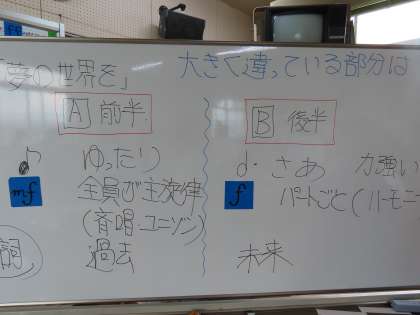 「夢の世界を」 大きく違っている部分は
A 前半
B 後半
ゆったり
d. さあ 力強い
mf 全員が主旋律
f パートごと(ハーモニー
(斉唱・ユニゾン)
詞
過去
未来